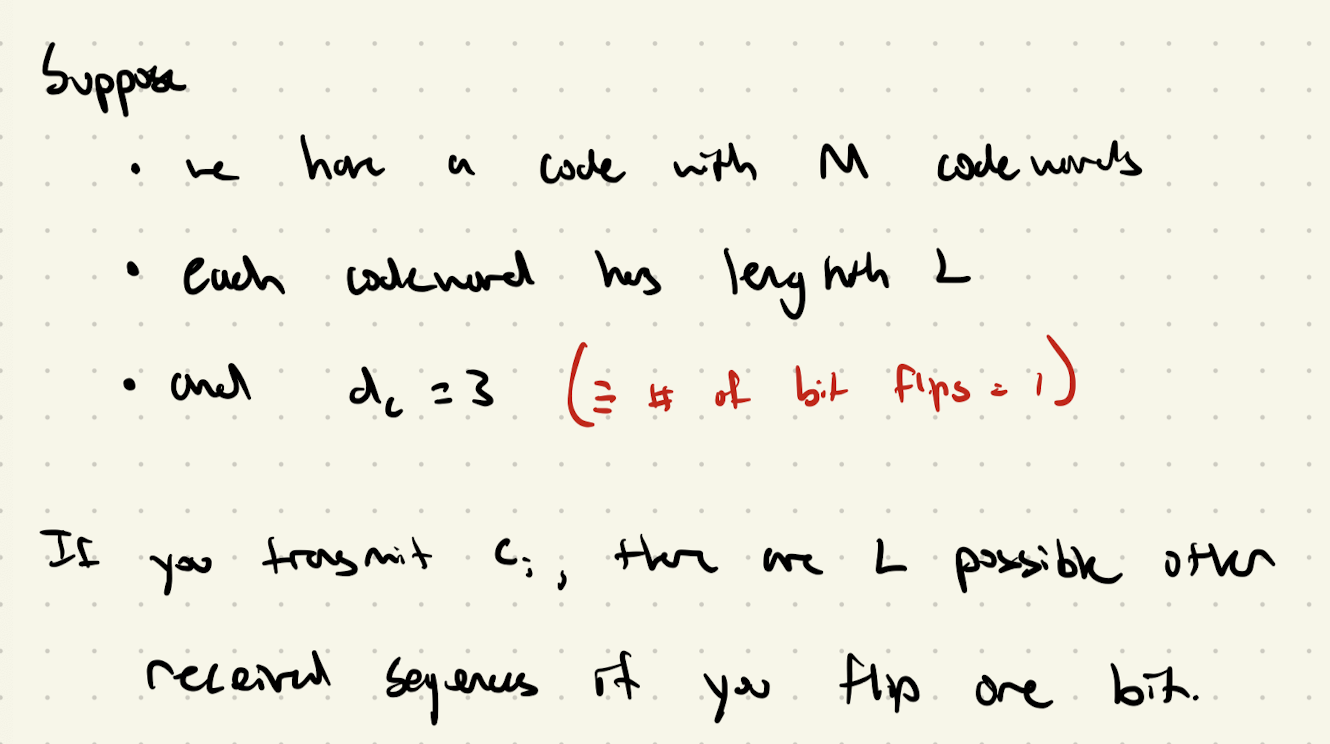 Suppose
• we have a code with M codewords
• each codeword has lenghth L
• and d_c = 3 (≡ # of bit flips = 1)
If you transmit c_i, there are L possible other
received sequences if you flip one bit.